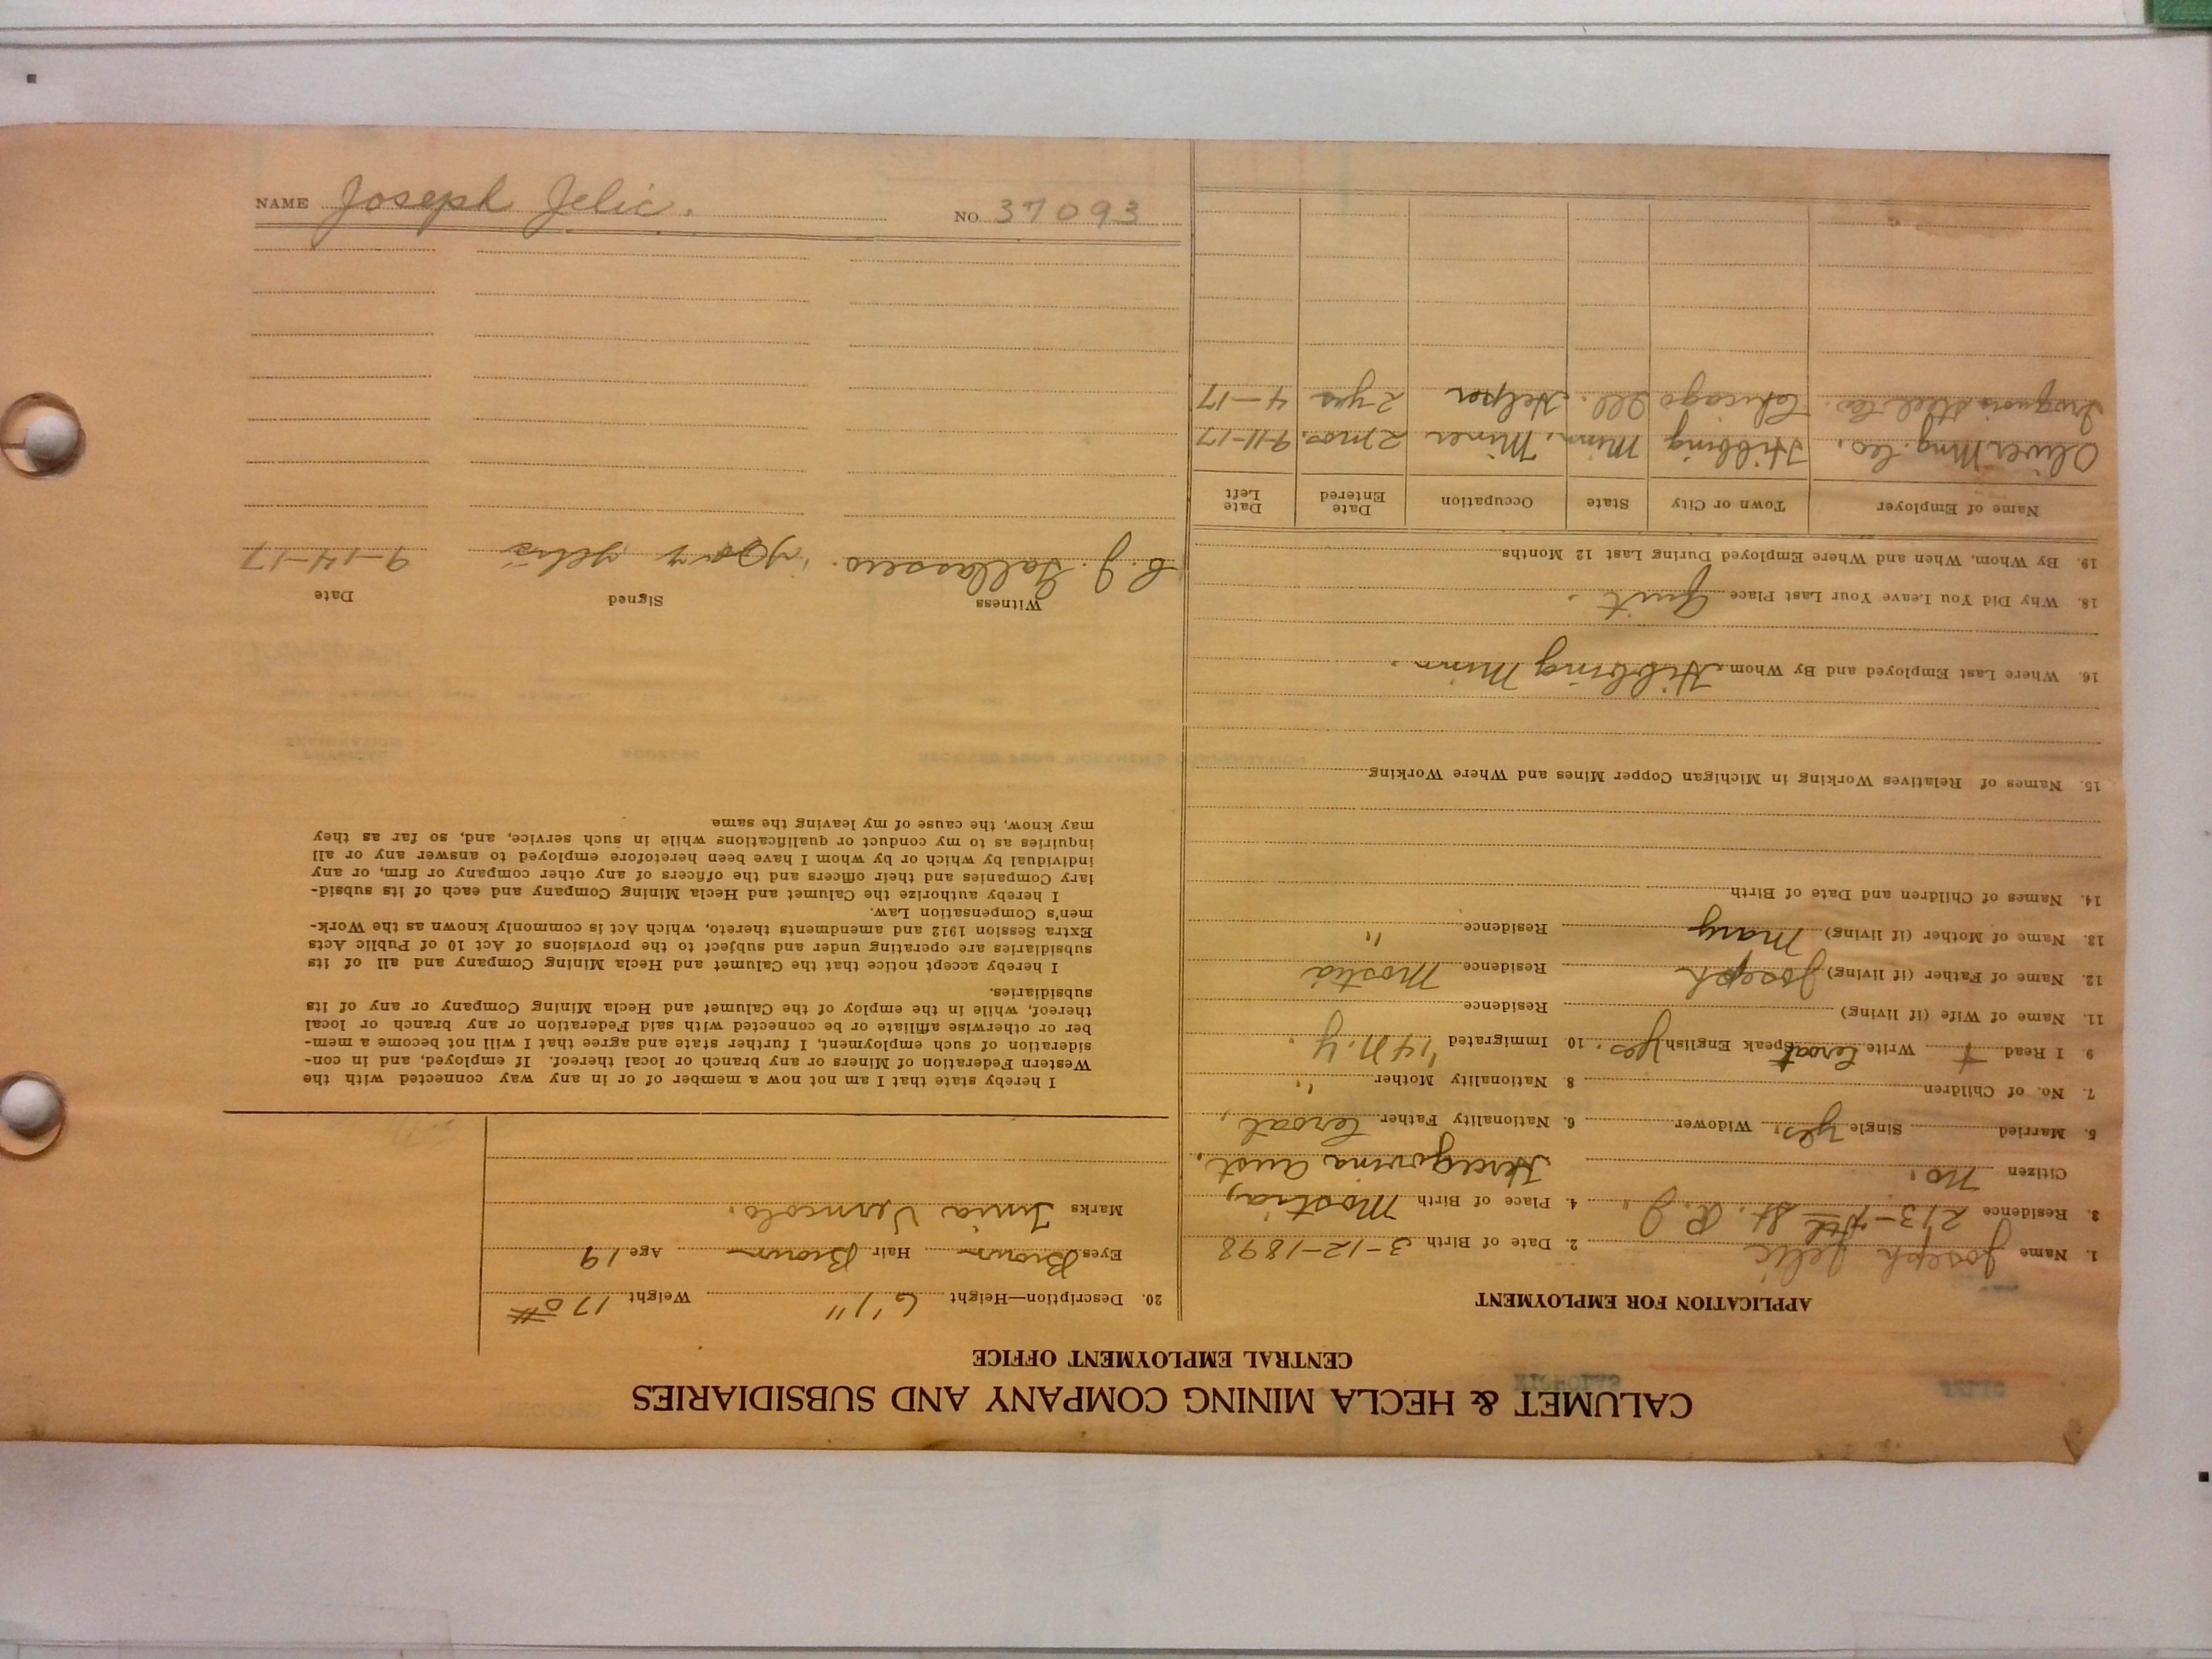 CALUMET & HECLA MINING COMPANY AND SUBSIDIARIES
CENTRAL EMPLOYMENT OFFICE
APPLICATION FOR EMPLOYMENT
1. Name Joseph Jelic 2. Date of Birth 3-12-1898
3. Residence 213-7th St. R. J. 4. Place of Birth Mostria,
Citizen no. Hercegovina Aust.
5. Married Single yes. Widower 6. Nationality Father Croat,
7. No. of Children 8. Nationality Mother "
9. I Read + Write Croat Speak English yes. 10. Immigrated '14 N.Y.
11. Name of Wife (if living) Residence
12. Name of Father (if living) Joseph Residence Mostia
13. Name of Mother (if living) Mary Residence "
14. Names of Children and Date of Birth
15. Names of Relatives Working in Michigan Copper Mines and Where Working
16. Where Last Employed and By Whom Hibbing Minn.
18. Why Did You Leave Your Last Place Quit.
19. By Whom, When and Where Employed During Last 12 Months
Name of Employer Town or City State Occupation Date Entered Date Left
Oliver Mng. Co. Hibbing Minn. Miner 2 mos. 9-11-17
Iroquois Steel Co. Chicago Ill. Helper 2 yrs 4-17
20. Description—Height 6'1" Weight 170#
Eyes Brown Hair Brown Age 19
Marks
I hereby state that I am not now a member of or in any way connected with the
Western Federation of Miners or any branch or local thereof. If employed, and in con-
sideration of such employment, I further state and agree that I will not become a mem-
ber or otherwise affiliate or be connected with said Federation or any branch or local
thereof, while in the employ of the Calumet and Hecla Mining Company or any of its
subsidiaries.
I hereby accept notice that the Calumet and Hecla Mining Company and all of its
subsidiaries are operating under and subject to the provisions of Act 10 of Public Acts
Extra Session 1912 and amendments thereto, which Act is commonly known as the Work-
men's Compensation Law.
I hereby authorize the Calumet and Hecla Mining Company and each of its subsid-
iary Companies and their officers and the officers of any other company or firm, or any
individual by which or by whom I have been heretofore employed to answer any or all
inquiries as to my conduct or qualifications while in such service, and, so far as they
may know, the cause of my leaving the same
Witness Signed Date
9-14-17
NAME Joseph Jelic. NO. 37093